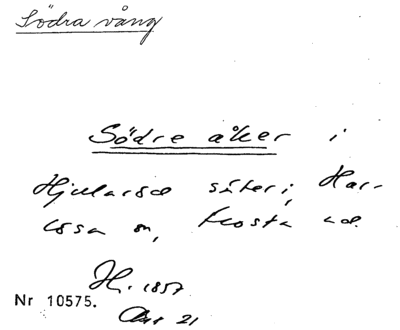 Södra vång
Södre åker i
Hjularöd säteri, Har-
lösa sn, Frosta hd.
H. 1857
Nr 10575.
21